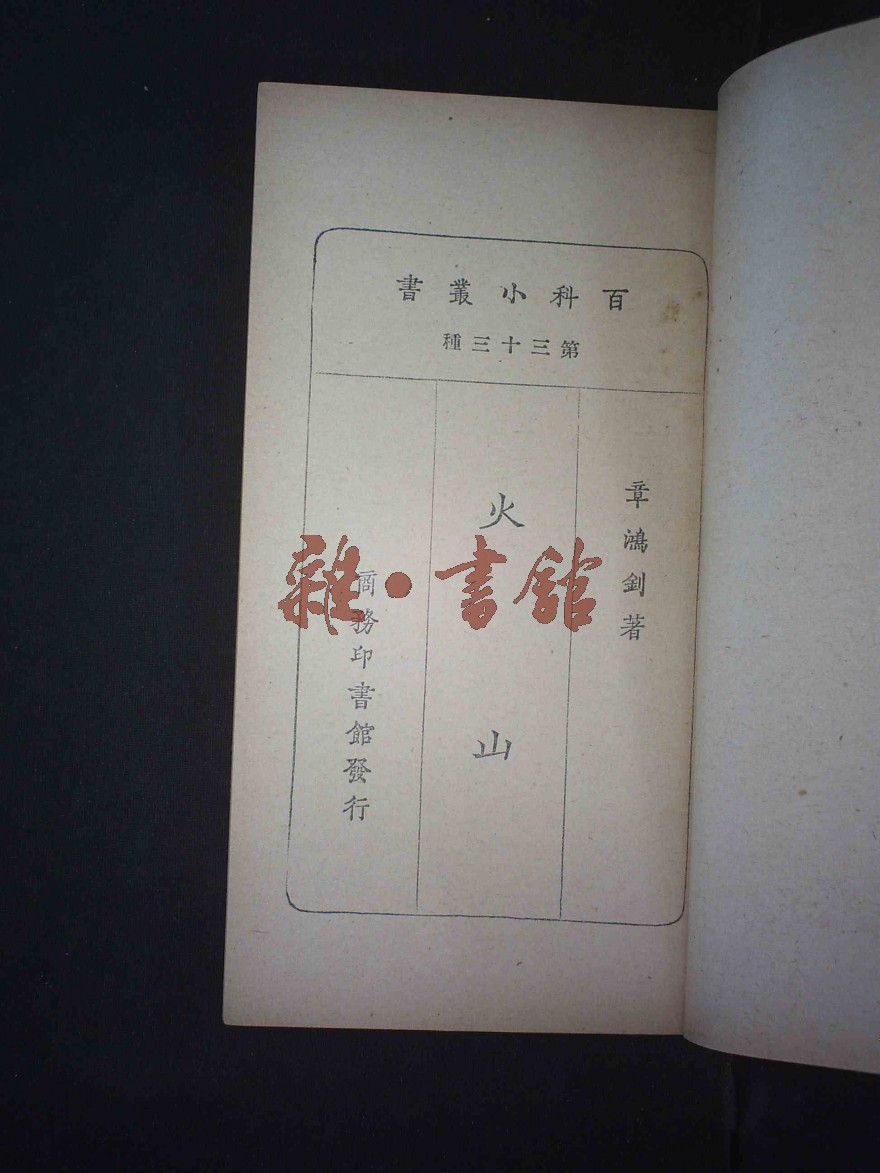 百科小叢書
第三十三種
章鴻釗著
火山
商務印書館發行
雜·書館